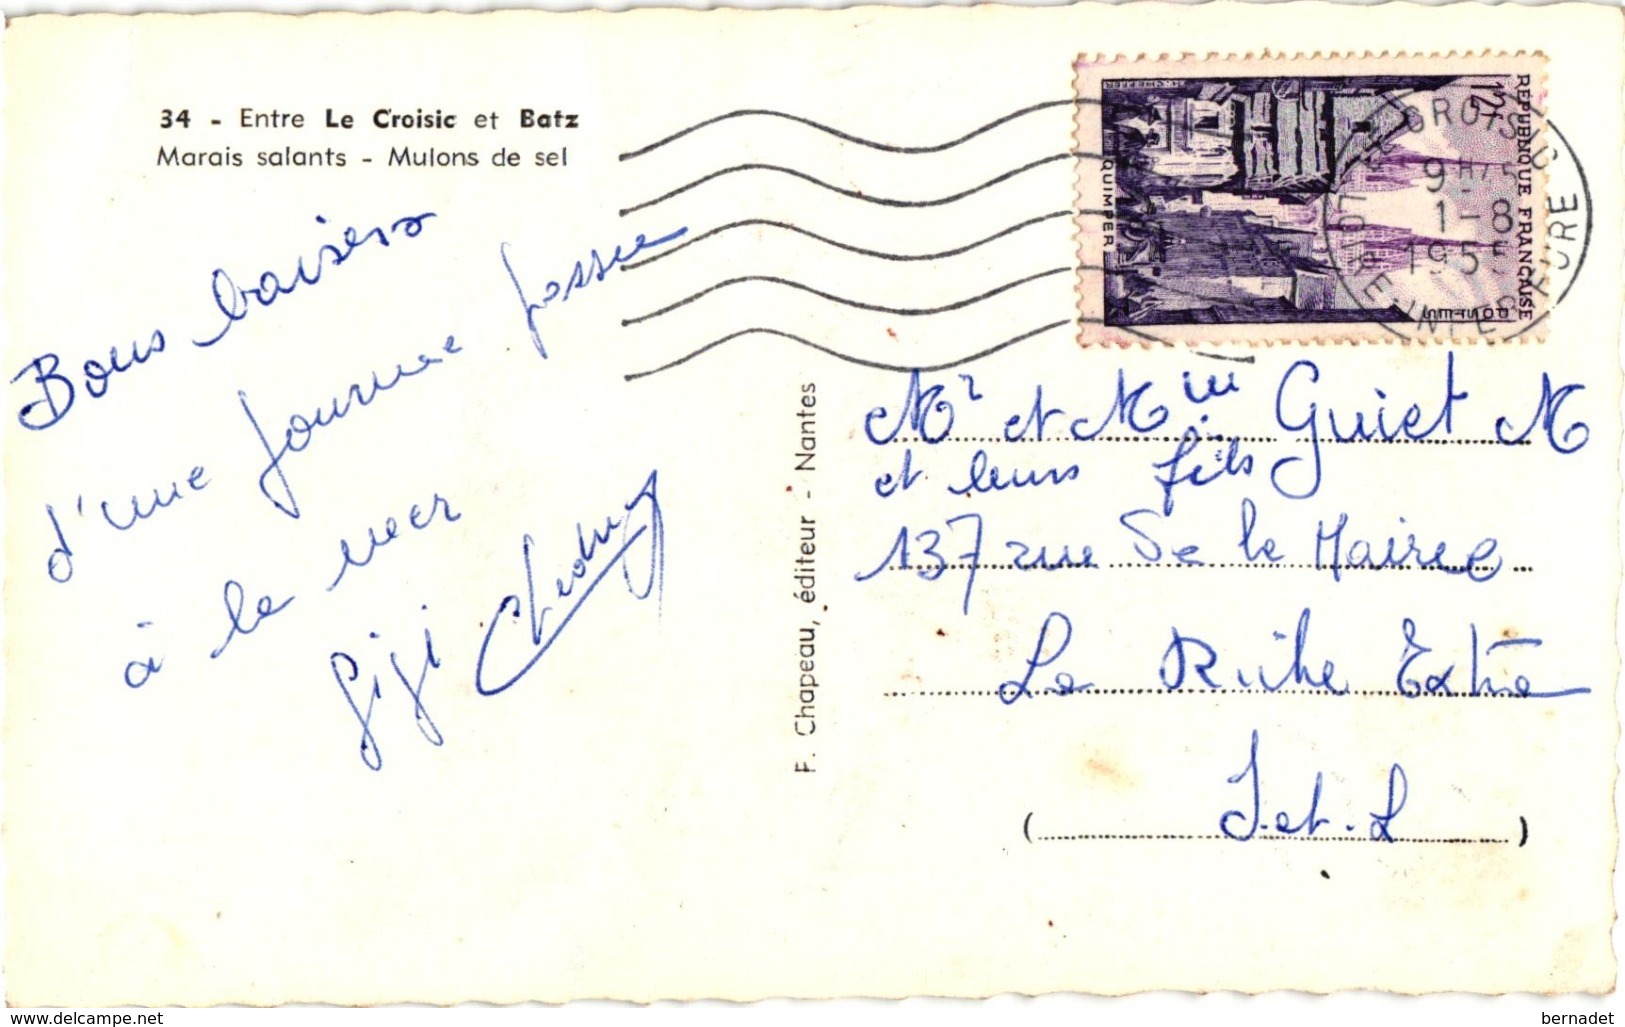 34 - Entre Le Croisic et Batz
Marais salants - Mulons de sel
Bons baisers
d'une journée passée
à la mer
Gigi
F. Chapeau, éditeur - Nantes
RÉPUBLIQUE FRANÇAISE
12F
POSTES
QUIMPER
LE CROISIC
9 H 15
1-8
195
LOIRE INFERIEURE
Mr et Mme Guiet M
et leurs fils
137 rue de la Mairie
La Riche Extra
I.et.L
www.delcampe.net
bernadet